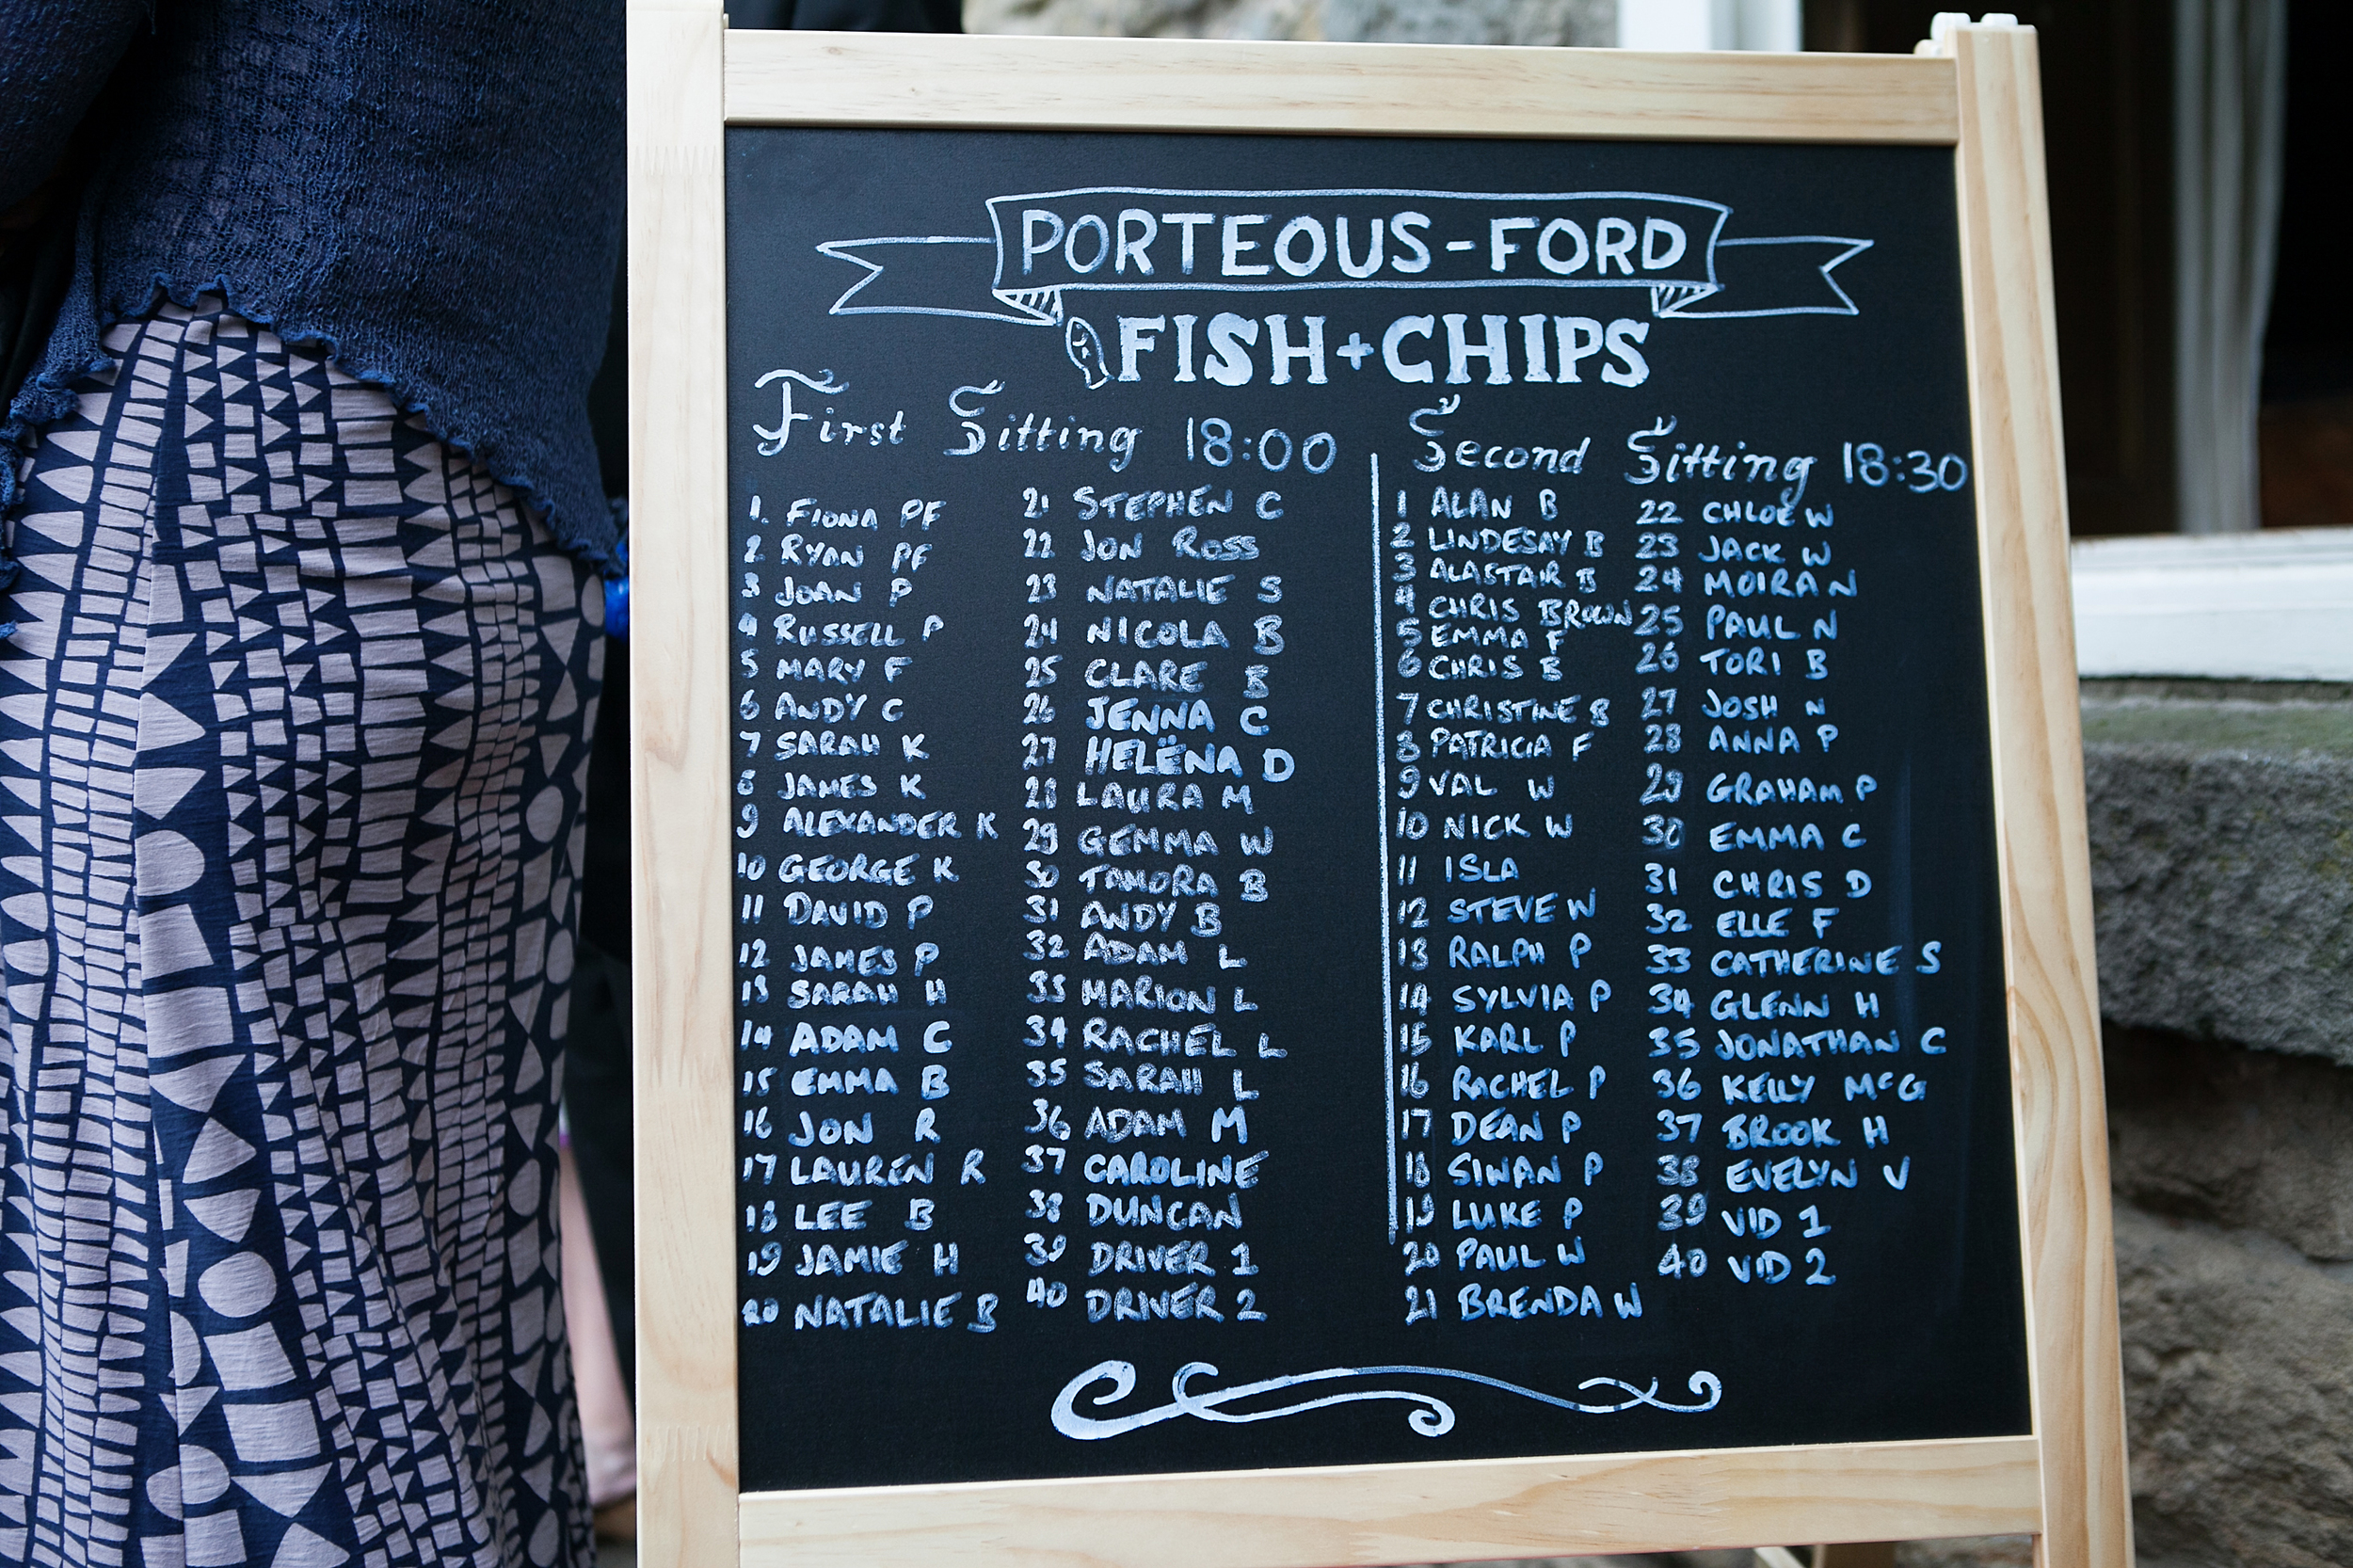 PORTEOUS-FORD
FISH+CHIPS
First Sitting 18:00
1. FIONA PF
2 RYAN PF
3 JOAN P
4 RUSSELL P
5 MARY F
6 ANDY C
7 SARAH K
8 JAMES K
9 ALEXANDER K
10 GEORGE K
11 DAVID P
12 JAMES P
13 SARAH H
14 ADAM C
15 EMMA B
16 JON R
17 LAUREN R
18 LEE B
19 JAMIE H
20 NATALIE B
21 STEPHEN C
22 JON ROSS
23 NATALIE S
24 NICOLA B
25 CLARE B
26 JENNA C
27 HELËNA D
28 LAURA M
29 GEMMA W
30 TAMORA B
31 ANDY B
32 ADAM L
33 MARION L
34 RACHEL L
35 SARAH L
36 ADAM M
37 CAROLINE
38 DUNCAN
39 DRIVER 1
40 DRIVER 2
Second Sitting 18:30
1 ALAN B
2 LINDESAY B
3 ALASTAIR B
4 CHRIS BROWN
5 EMMA F
6 CHRIS B
7 CHRISTINE B
8 PATRICIA F
9 VAL W
10 NICK W
11 ISLA
12 STEVE W
13 RALPH P
14 SYLVIA P
15 KARL P
16 RACHEL P
17 DEAN P
18 SIWAN P
19 LUKE P
20 PAUL W
21 BRENDA W
22 CHLOE W
23 JACK W
24 MOIRA N
25 PAUL N
26 TORI B
27 JOSH N
28 ANNA P
29 GRAHAM P
30 EMMA C
31 CHRIS D
32 ELLE F
33 CATHERINE S
34 GLENN H
35 JONATHAN C
36 KELLY McG
37 BROOK H
38 EVELYN V
39 VID 1
40 VID 2